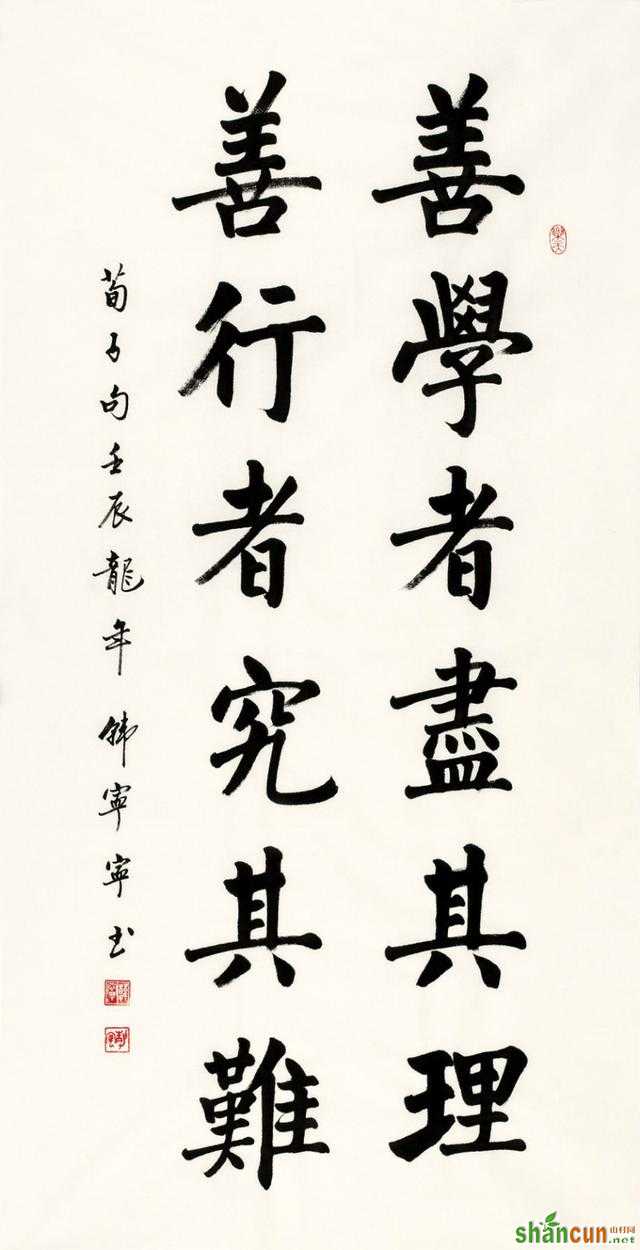 善學者盡其理
善行者究其難
荀子句壬辰龍年韩寧寧书
山村网
shancun
.net